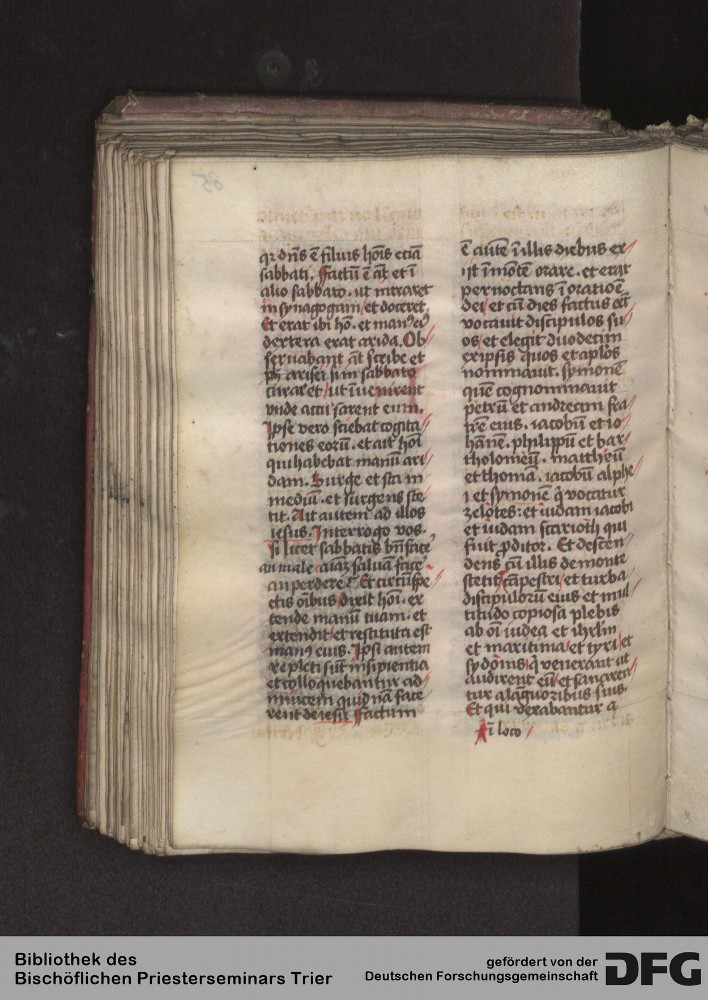 qr dn̄s ē filius hōis eciā
sabbati. Factū ē āt et ī
alio sabbato. ut intraret
in synagogam et doceret.
Et erat ibi hō. et man9 ei9
dextera erat arida. Ob
seruabant āt scribe et
pharisei si in sabbato
curaret ut īuenirent
unde accusarent eum.
Ipse vero sciebat cogita
tiones eorū. et ait hōi
qui habebat manū ari
dam. Surge et sta in
mediū. et surgens ste
tit. Ait autem ad illos
iesus. Interrogo vos.
si licet sabbatis bn̄ face
an male aīaz saluā face
an perdere? Et circūspe
ctis oībus dixit hōi. ex
tende manū tuam. et
extendit et restituta est
man9 eius. Ipsi autem
repleti sūt insipientia
et colloquebantur ad
inuicem quid nā face
rent de iesu. Factum
ē autē ī illis diebus ex
iit ī mōte orare. et erat
pernoctans ī oratioē
dei et cū dies factus eēt
vocauit discipulos su
os et elegit duodecim
ex ipsis quos et aplōs
nominauit. symonē
quē cognominauit
petrū et andream fra
trē eius. iacobū et io
hānē. philippū et bar
tholomeū. mattheū
et thomā. iacobū alphe
i et symonē q̄ vocatur
zelotes: et iudam iacobi
et iudam scarioth qui
fuit ꝓditor. Et descen
dens cū illis de monte
stetit ī cāpestri et turba
discipulorū eius et mul
titudo copiosa plebis
ab oī iudea et ihrlm̄
et maritima et tyri et
sydonis q̄ venerant ut
audirent eū et sanaren
tur a laguoribus suis.
Et qui vexabantur a
ī loco
Bibliothek des
Bischöflichen Priesterseminars Trier
gefördert von der
Deutschen Forschungsgemeinschaft
DFG